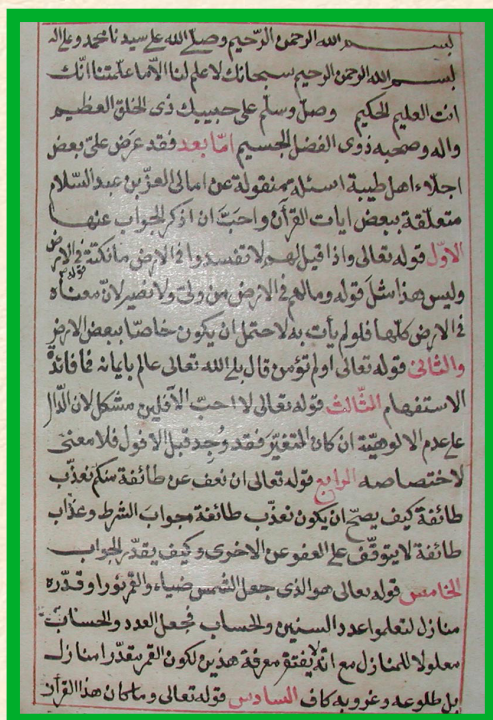 بسم الله الرحمن الرحيم وصلى الله على سيدنا محمد وعلى اله
بسم الله الرحمن الرحيم سبحانك لا علم لنا الا ما علمتنا انك
انت العليم الحكيم وصل وسلم على حبيبك ذى الخلق العظيم
واله وصحبه ذوى الفضل الجسيم اما بعد فقد عرض على بعض
اجلاء اهل طيبة اسئلة منقولة عن امالى العز بن عبد السلام
متعلقة ببعض ايات القرآن واحب ان اذكر الجواب عنها
الاول قوله تعالى واذا قيل لهم لا تفسدوا فى الارض ما نكتة فى الارض
وليس هذا مثل قوله وما لهم فى الارض من ولى ولا نصير لان معناه
فى الارض كلها فلو لم يأت به لاحتمل ان يكون خاصا ببعض الارض
والثانى قوله تعالى اولم تؤمن قال بلى الله تعالى عالم بايمانه فما فائدة
الاستفهام الثالث قوله تعالى لا احب الآفلين مشكل لان الدال
على عدم الالوهية ان كان المتغير فقد وجد قبل الافول فلا معنى
لاختصاصه الرابع قوله تعالى ان نعف عن طائفة منكم نعذب
طائفة كيف يصح ان يكون نعذب طائفة جواب الشرط وعذاب
طائفة لا يتوقف على العفو عن الاخرى وكيف يقدر الجواب
الخامس قوله تعالى هو الذى جعل الشمس ضياء والقمر نورا وقدره
منازل لتعلموا عدد السنين والحساب فجعل العدد والحساب
معلولا للمنازل مع انه لا يفتقر معرفة هذين لكون القمر مقدرا منازل
بل طلوعه وغروبه كاف السادس قوله تعالى وما كان هذا القرآن